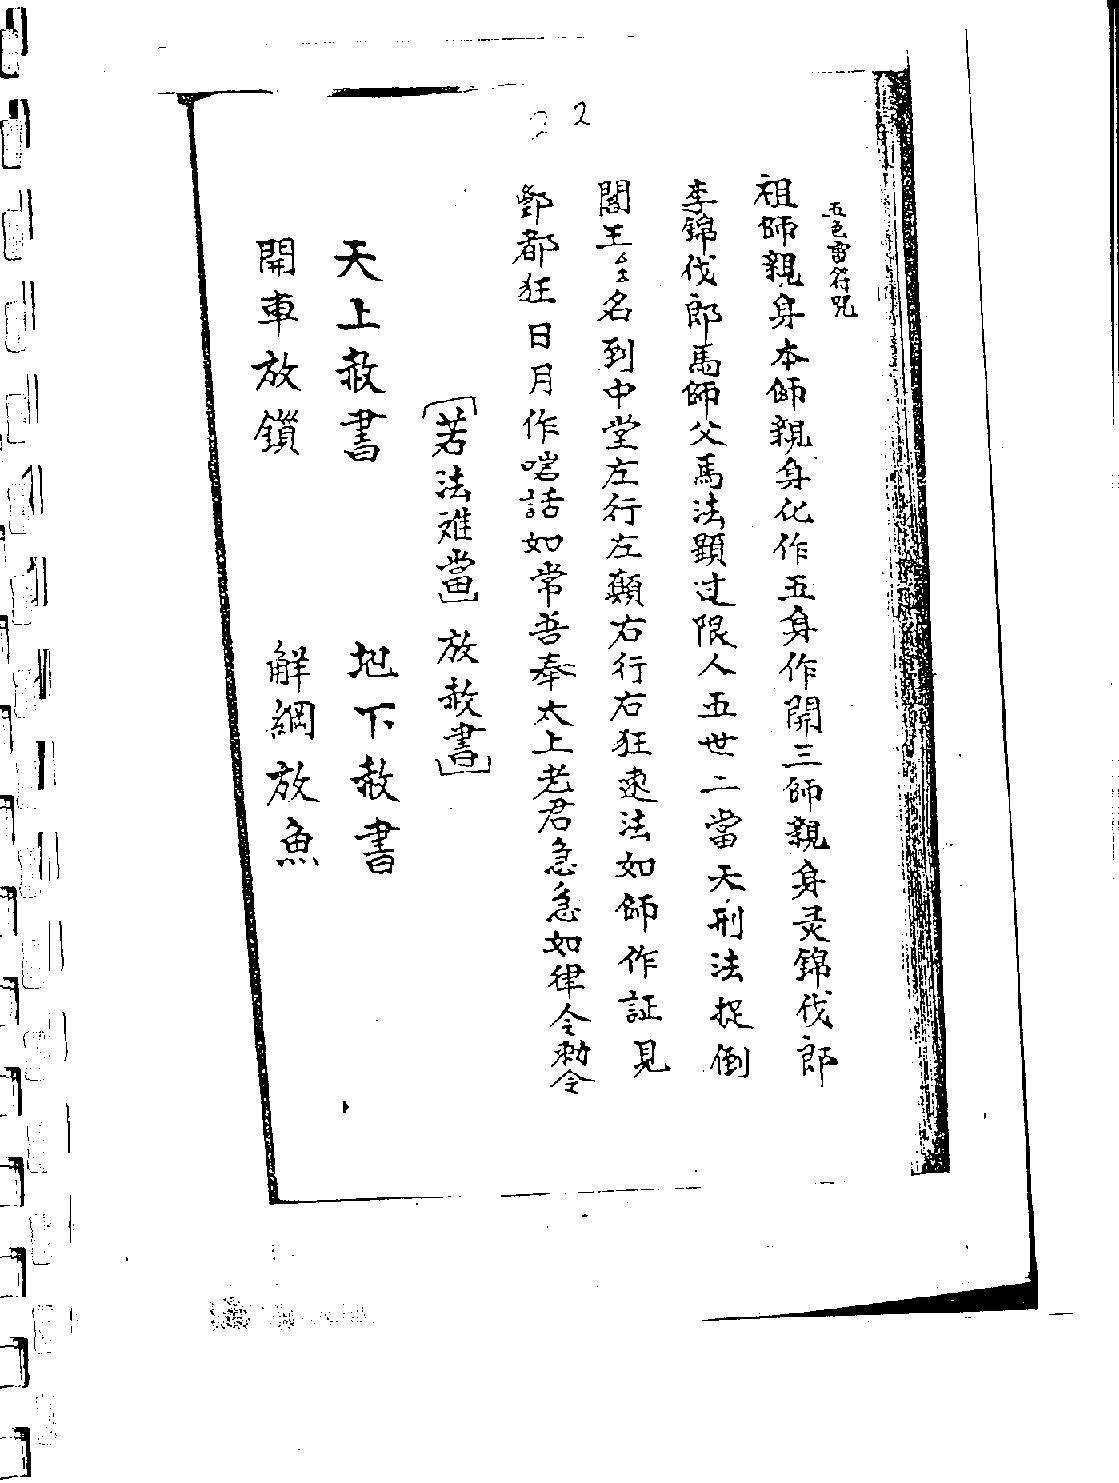 22
五色雷符咒
祖師親身本師親身化作五身作開三師親身灵錦伐郎
李錦伐郎馬師父馬法顕过限人五世二當天刑法捉倒
閻王厶厶名到中堂左行左顛右行右狂速法如師作証見
酆都狂日月作啱話如常善奉太上老君急急如律令勅令
[若法难當]放赦書]
天上赦書 地下赦書
開車放鎖 解綱放魚